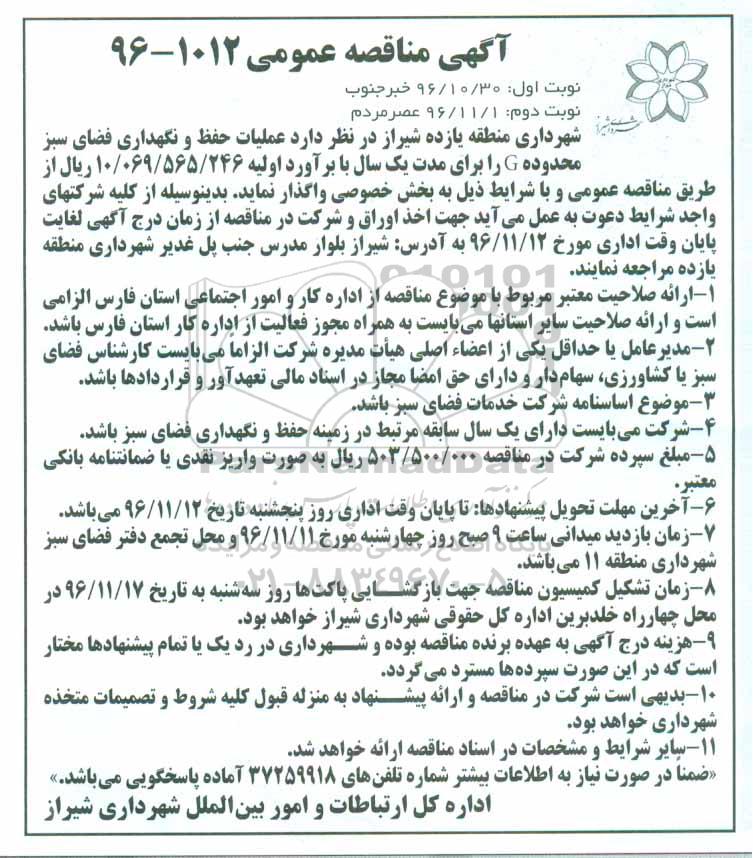 آگهی مناقصه عمومی ۱۰۱۲-۹۶
نوبت اول: ۹۶/۱۰/۳۰ خبرجنوب
نوبت دوم: ۹۶/۱۱/۱ عصرمردم
شهرداری منطقه یازده شیراز در نظر دارد عملیات حفظ و نگهداری فضای سبز
محدوده G را برای مدت یک سال با برآورد اولیه ۱۰/۰۶۹/۵۶۵/۲۴۶ ریال از
طریق مناقصه عمومی و با شرایط ذیل به بخش خصوصی واگذار نماید. بدینوسیله از کلیه شرکتهای
واجد شرایط دعوت به عمل می‌آید جهت اخذ اوراق و شرکت در مناقصه از زمان درج آگهی لغایت
پایان وقت اداری مورخ ۹۶/۱۱/۱۲ به آدرس: شیراز بلوار مدرس جنب پل غدیر شهرداری منطقه
یازده مراجعه نمایند.
۱-ارائه صلاحیت معتبر مربوط با موضوع مناقصه از اداره کار و امور اجتماعی استان فارس الزامی
است و ارائه صلاحیت سایر استانها می‌بایست به همراه مجوز فعالیت از اداره کار استان فارس باشد.
۲-مدیرعامل یا حداقل یکی از اعضاء اصلی هیأت مدیره شرکت الزاما می‌بایست کارشناس فضای
سبز یا کشاورزی، سهام‌دار و دارای حق امضا مجاز در اسناد مالی تعهدآور و قراردادها باشد.
۳-موضوع اساسنامه شرکت خدمات فضای سبز باشد.
۴-شرکت می‌بایست دارای یک سال سابقه مرتبط در زمینه حفظ و نگهداری فضای سبز باشد.
۵-مبلغ سپرده شرکت در مناقصه ۵۰۳/۵۰۰/۰۰۰ ریال به صورت واریز نقدی یا ضمانتنامه بانکی
معتبر.
۶-آخرین مهلت تحویل پیشنهادها: تا پایان وقت اداری روز پنجشنبه تاریخ ۹۶/۱۱/۱۲ می‌باشد.
۷-زمان بازدید میدانی ساعت ۹ صبح روز چهارشنبه مورخ ۹۶/۱۱/۱۱ و محل تجمع دفتر فضای سبز
شهرداری منطقه ۱۱ می‌باشد.
۸-زمان تشکیل کمیسیون مناقصه جهت بازگشایی پاکت‌ها روز سه‌شنبه به تاریخ ۹۶/۱۱/۱۷ در
محل چهارراه خلدبرین اداره کل حقوقی شهرداری شیراز خواهد بود.
۹-هزینه درج آگهی به عهده برنده مناقصه بوده و شهرداری در رد یک یا تمام پیشنهادها مختار
است که در این صورت سپرده‌ها مسترد می‌گردد.
۱۰-بدیهی است شرکت در مناقصه و ارائه پیشنهاد به منزله قبول کلیه شروط و تصمیمات متخذه
شهرداری خواهد بود.
۱۱-سایر شرایط و مشخصات در اسناد مناقصه ارائه خواهد شد.
«ضمناً در صورت نیاز به اطلاعات بیشتر شماره تلفن‌های ۳۷۲۵۹۹۱۸ آماده پاسخگویی می‌باشد.»
اداره کل ارتباطات و امور بین‌الملل شهرداری شیراز
ParsNamadData
۰۲۱-۸۸۳۴۹۶۷۰-۵